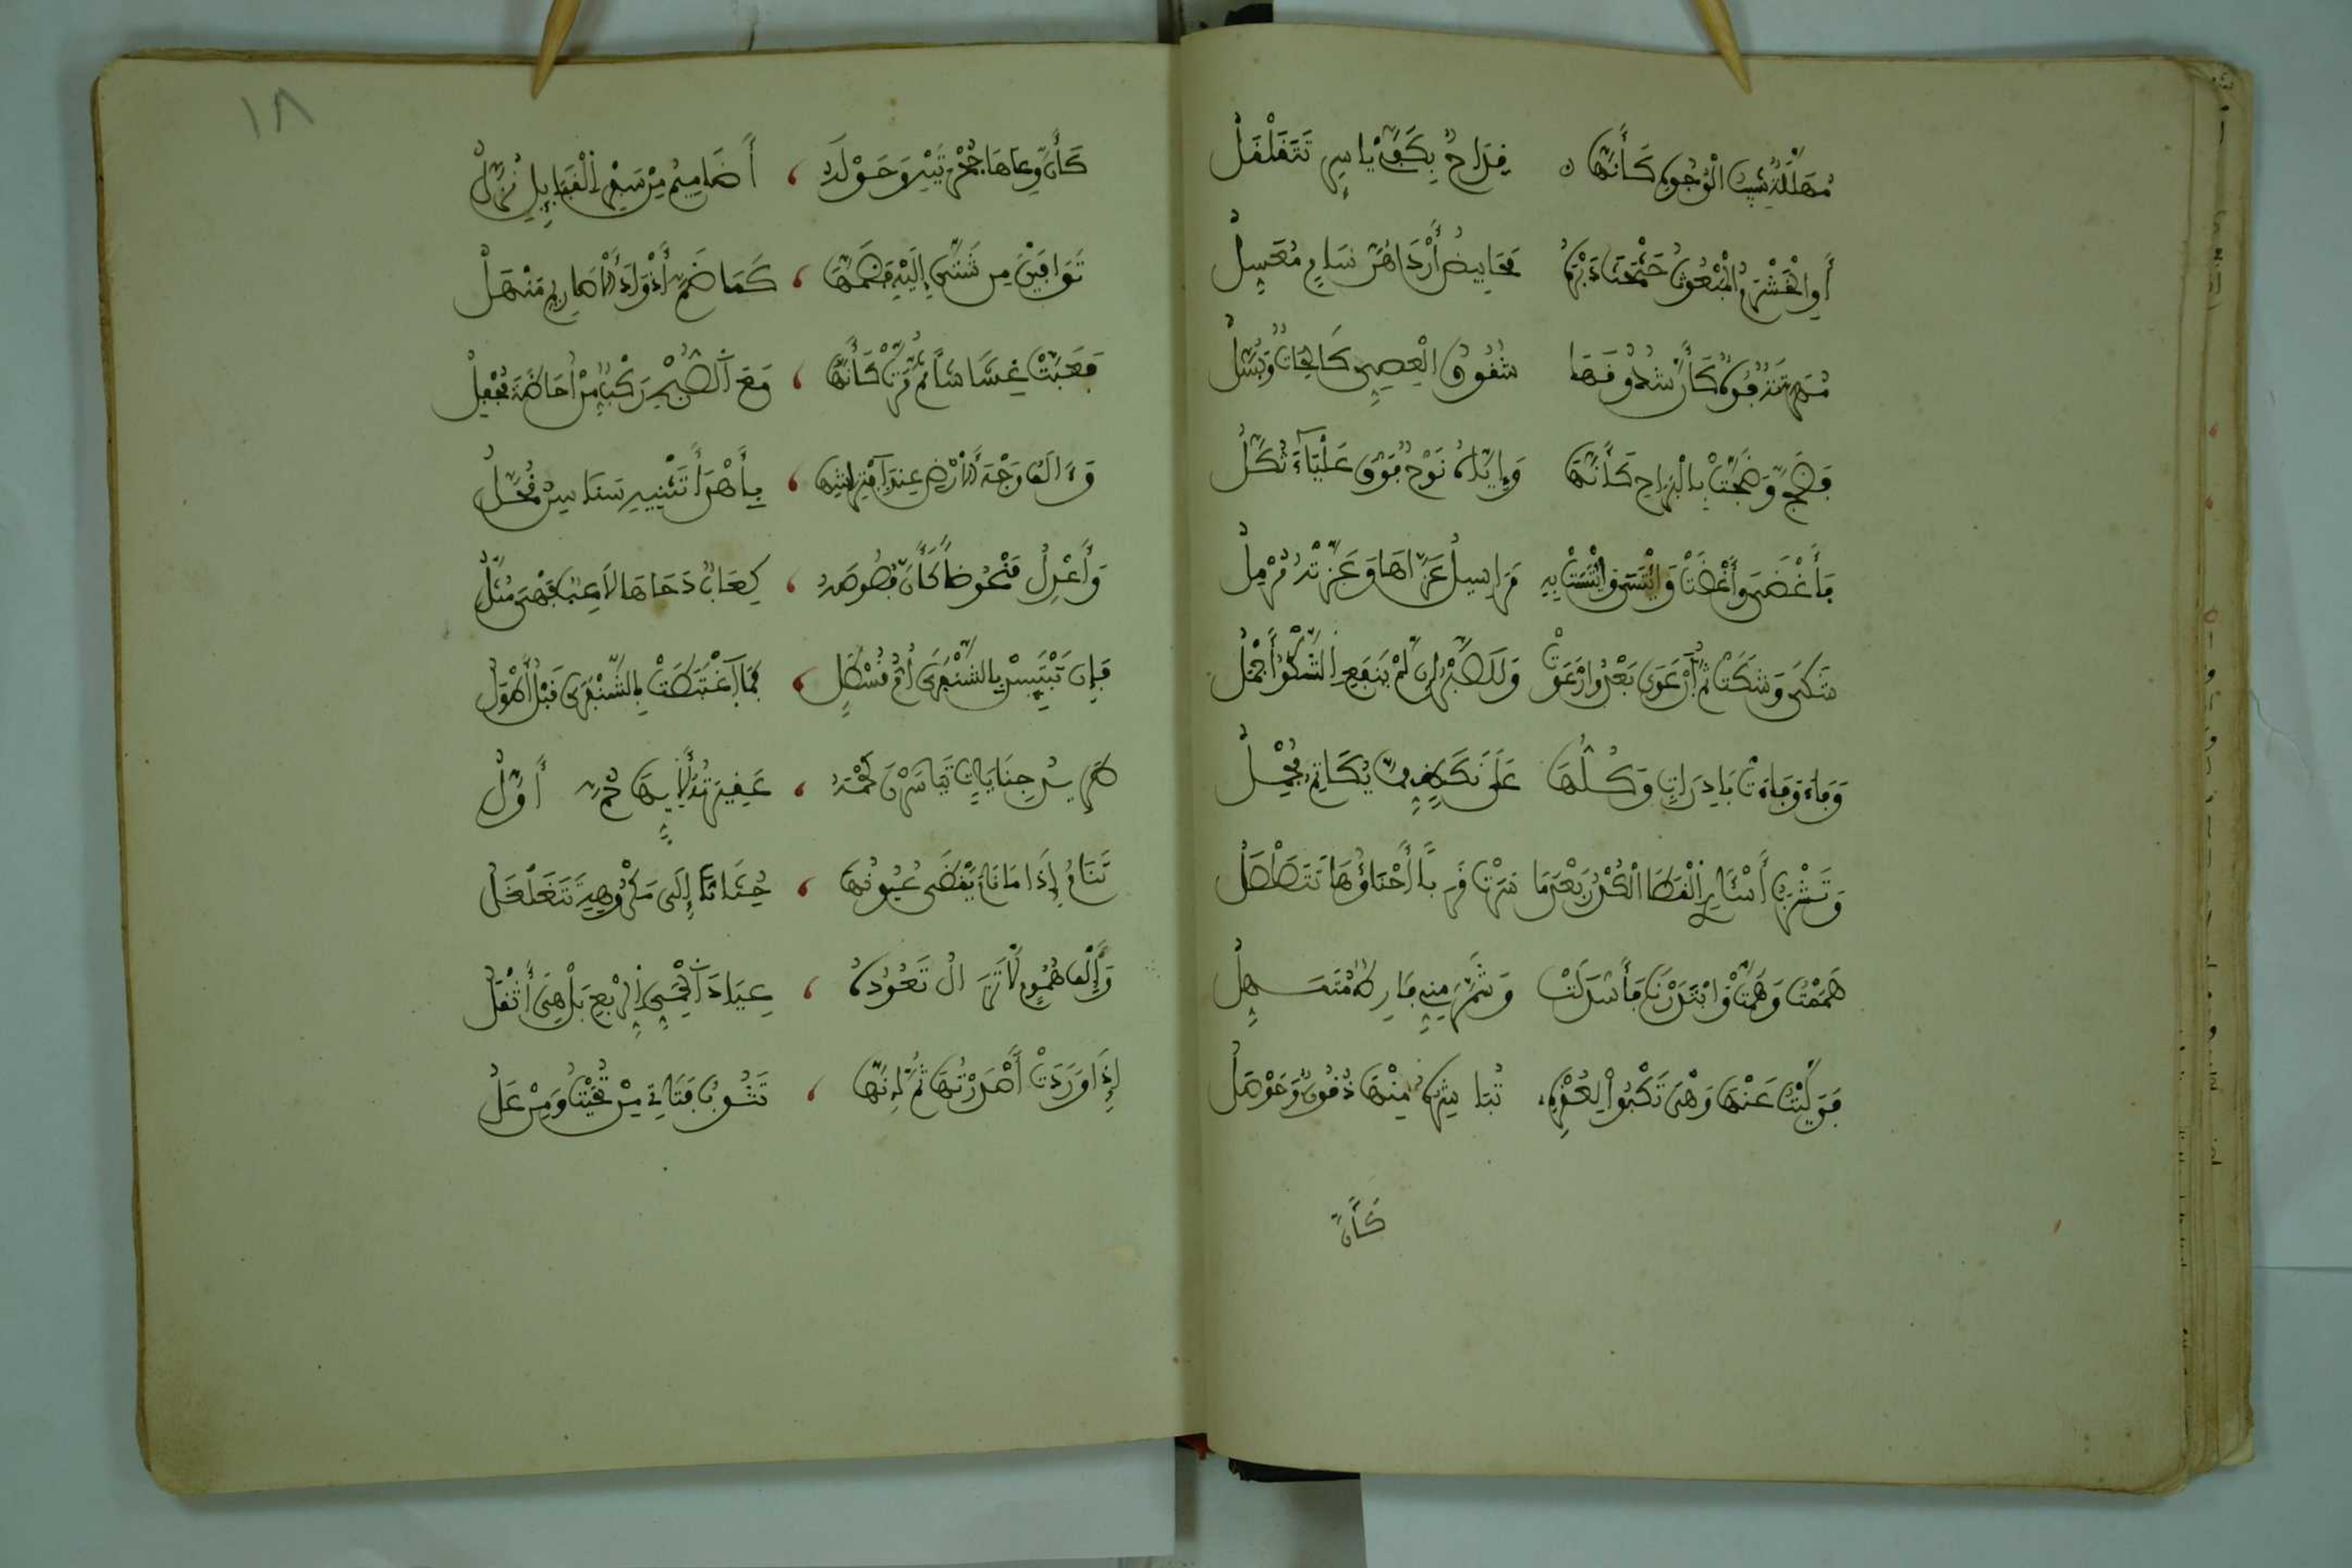 مُهَلَّلَةٌ شِيبُ الْوُجُوهِ كَأَنَّهَا قِدَاحٌ بِكَفَّيْ يَاسِرٍ تَتَقَلْقَلُ
أَوِ الْخَشْرَمُ الْمَبْعُوثُ حَثْحَثَ دَبْرَهُ مَحَابِيضُ أَرْدَاهُنَّ سَامٍ مُعَسِّلُ
مُهَرَّتَةٌ فُوهٌ كَأَنَّ شُدُوقَهَا شُقُوقُ الْعِصِيِّ كَالِحَاتٌ وَبُسَّلُ
فَضَجَّ وَضَجَّتْ بِالْبَرَاحِ كَأَنَّهَا وَإِيَّاهُ نَوْحٌ فَوْقَ عَلْيَاءَ ثُكَّلُ
فَأَغْضَى وَأَغْضَتْ وَاتَّسَى وَاتَّسَتْ بِهِ مَرَامِيلُ عَزَّاهَا وَعَزَّتْهُ مُرْمِلُ
شَكَى وَشَكَتْ ثُمَّ ارْعَوَى بَعْدُ وَارْعَوَتْ وَلَلصَّبْرُ إِن لَّمْ يَنفَعِ الشَّكْوُ أَجْمَلُ
وَفَاءَ وَفَاءَتْ بَادِرَاتٍ وَكُلُّهَا عَلَى نَكَظٍ مِمَّا يُكَاتِمُ مُجْمِلُ
وَتَشْرَبُ أَسْآرِي الْقَطَا الْكُدْرُ بَعْدَمَا سَرَتْ قَرَباً أَحْنَاؤُهَا تَتَصَلْصَلُ
هَمَمْتُ وَهَمَّتْ وَابْتَدَرْنَا فَأَسْدَلَتْ وَشَمَّرَ مِنِّي فَارِطٌ مُتَمَهِّلُ
فَوَلَّيْتُ عَنْهَا وَهْيَ تَكْبُوا لِعُقْرِهِ تُبَاشِرُهُ مِنْهَا ذُقُونٌ وَحَوْصَلُ
كَأَنَّ
١٨
كَأَنَّ وَعَاهَا حُجْرَتَيْهِ وَحَوْلَهُ ، أَضَامِيمُ مِنْ سَفْرِ الْقَبَايِلِ نُزَّلُ
تَوَافَيْنَ مِن شَتَّى إِلَيْهِ فَضَمَّهَا ، كَمَا ضَمَّ أَذْوَادَ الْأَصَارِيمِ مَنْهَلُ
فَعَبَّتْ غِشَاشاً ثُمَّ مَرَّتْ كَأَنَّهَا ، مَعَ الصُّبْحِ رَكْبٌ مِنْ أُحَاظَةَ مُجْفِلُ
وَءَالَفُ وَجْهَ الْأَرْضِ عِندَ افْتِرَاشِهَا ، بِأَهْدَأَ تُنْبِيهِ سَنَاسِنُ قُحَّلُ
وَأَعْدِلُ مَنْحُوضاً كَأَنَّ فُصُوصَهُ ، كِعَابٌ دَحَاهَا لَاعِبٌ فَهْيَ مُثَّلُ
فَإِن تَبْتَئِسْ بِالشَّنْفَرَى أُمُّ قَسْطَلٍ ، لَمَا اغْتَبَطَتْ بِالشَّنْفَرَى قَبْلُ أَطْوَلُ
طَرِيدُ جِنَايَاتٍ تَيَاسَرْنَ لَحْمَهُ ، عَقِيرَتُهُ لِأَيِّهَا حُمَّ أَوَّلُ
تَنَامُ إِذَا مَا نَامَ يَقْظَى عُيُونُهَا ، حِثَاثاً إِلَى مَكْرُوهِهِ تَتَغَلْغَلُ
وَإِلْفُ هُمُومٍ لَّا تَزَالُ تَعُودُهُ ، عِيَاداً كَحُمَّى الرِّبْعِ بَلْ هِيَ أَثْقَلُ
إِذَا وَرَدَتْ أَصْدَرْتُهَا ثُمَّ إِنَّهَا ، تَثُوبُ فَتَأْتِي مِنْ تُحَيْتُ وَمِنْ عَلُ